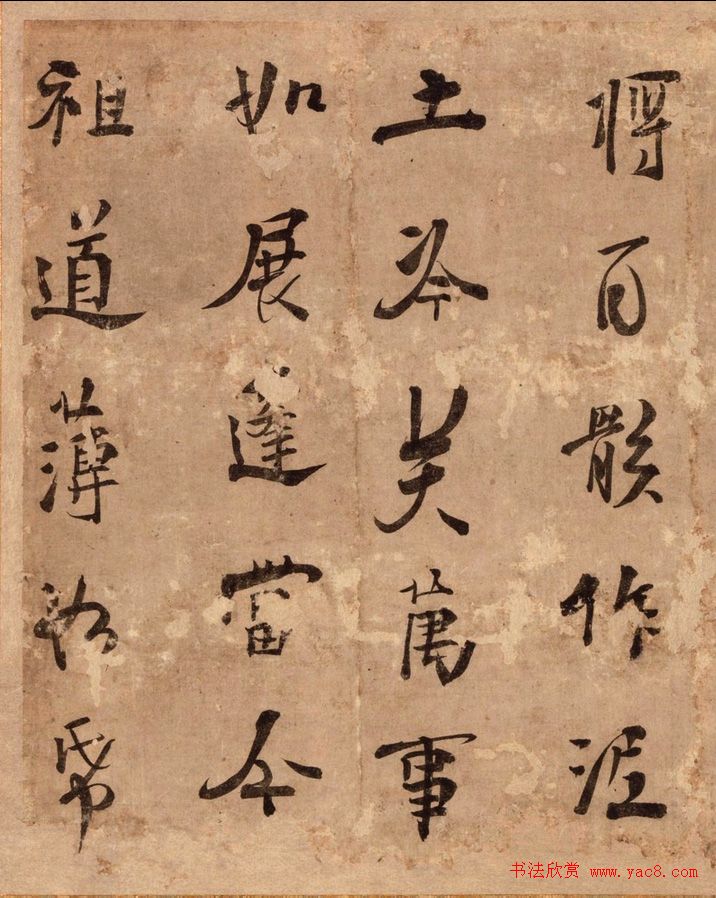 將百骸作泥
土冷笑萬事
如展當今
祖道薄於帋
书法欣赏 www.yac8.com